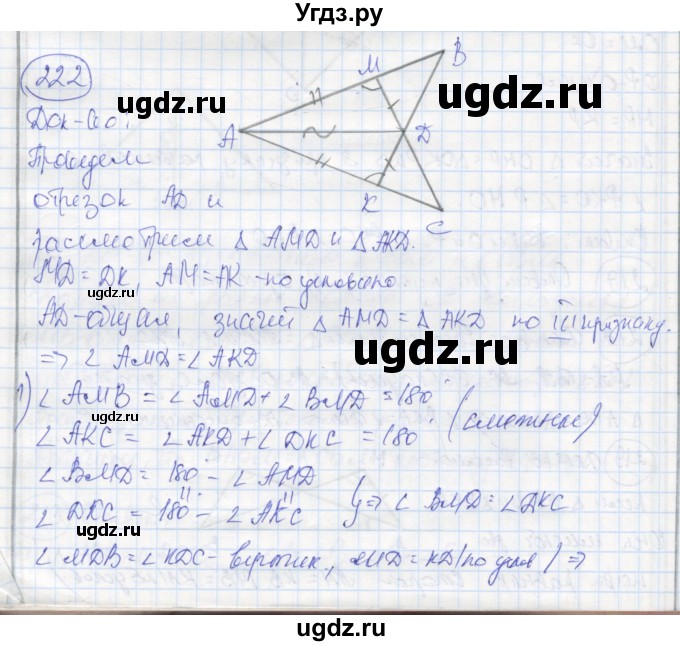 Угдз.ру
222
B
M
A
D
K
C
ugdz.ru
ugdz.ru
Док-во:
Проведем
отрезок AD и
рассмотрим △ AMD и △ AKD.
MD = DK, AM = AK - по условию.
AD - общая, значит △ AMD = △ AKD по III признаку.
=> ∠ AMD = ∠ AKD
ugdz.ru
ugdz.ru
1) ∠ AMB = ∠ AMD + ∠ BMD = 180° (смежные)
∠ AKC = ∠ AKD + ∠ DKC = 180°
∠ BMD = 180° - ∠ AMD
∠ DKC = 180° - ∠ AKC } => ∠ BMD = ∠ DKC
ugdz.ru
ugdz.ru
∠ MDB = ∠ KDC - вертик., MD = KD (по услов) =>
ugdz.ru